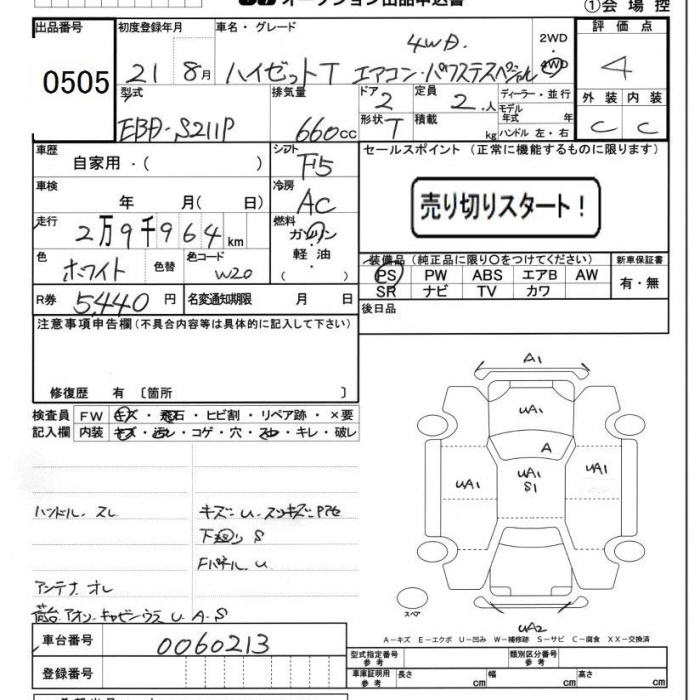 オークション出品申込書
①会場控
出品番号
0505
初度登録年月
21 8月
車名・グレード
ハイゼットT 4WD. エアコン・パワステスペシャル
2WD
4WD
評価点
4
外装 内装
C C
型式
EBD-S211P
排気量
660cc
ドア 2
定員 2人
形状 T
積載 kg
ディーラー・並行
モデル年式 年
ハンドル 左・右
車歴
自家用・( )
シフト
F5
車検
年 月( 日)
冷房
AC
走行
2万9千964km
燃料
ガソリン
軽油
( )
色
ホワイト
色替
色コード
W20
R券 5,440円
名変通知期限 月 日
セールスポイント(正常に機能するものに限ります)
売り切りスタート!
装備品(純正品に限り○をつけてください)
PS PW ABS エアB AW
SR ナビ TV カワ
新車保証書
有・無
後日品
注意事項申告欄(不具合内容等は具体的に記入して下さい)
修復歴 有 〔箇所 〕
検査員記入欄
FW キズ・飛石・ヒビ割・リペア跡・×要
内装 キズ・汚レ・コゲ・穴・スレ・キレ・破レ
ハンドル スレ
キズ・U・スリキズ
下廻り S
Fパネル U
アンテナ オレ
荷台、アオリ・キャビンウラ U・A・S
A1
UA1
A
UA1
UA1
S1
UA1
UA2
スペア
A-キズ E-エクボ U-凹み W-補修跡 S-サビ C-腐食 XX-交換済
車台番号
0060213
登録番号
型式指定番号
参考
類別区分番号
参考
車庫証明用
参考
長さ cm
幅 cm
高さ cm